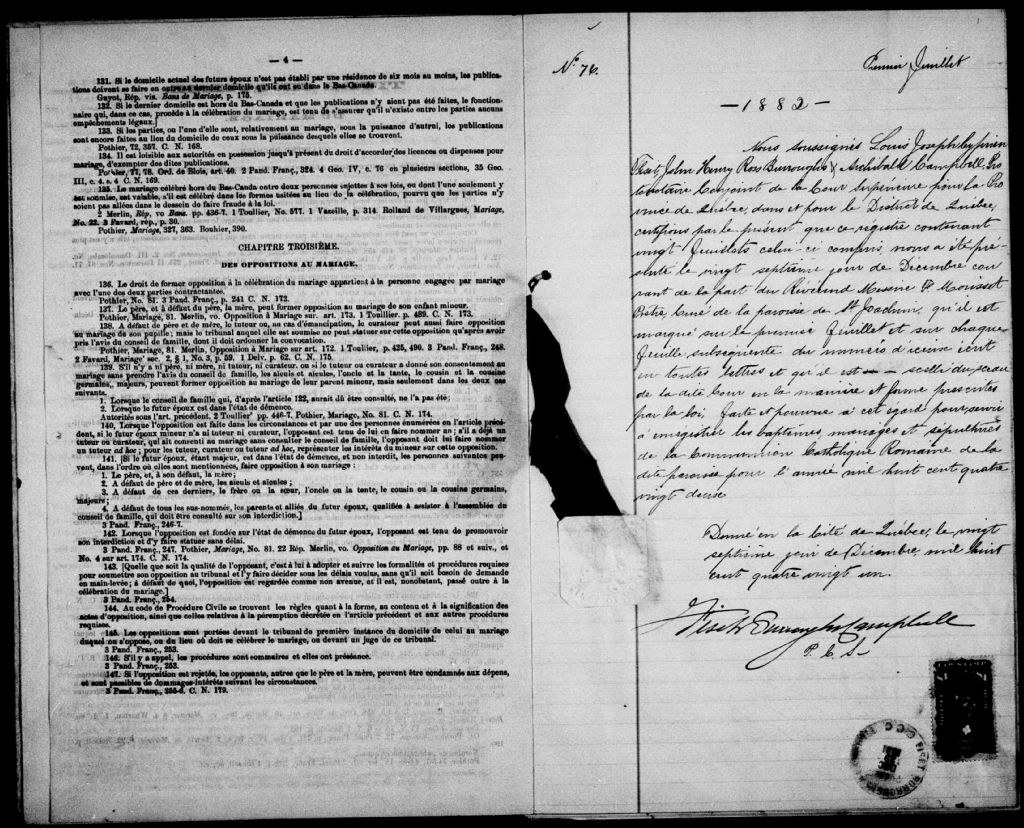 — 4 —
131. Si le domicile actuel des futurs époux n'est pas établi par une résidence de six mois au moins, les publica-
tions doivent se faire en outre au dernier domicile qu'ils ont eu dans le Bas-Canada.
Guyot, Rép. vis. Bans de Mariage, p. 175.
132. Si le dernier domicile est hors du Bas-Canada et que les publications n'y aient pas été faites, le fonction-
naire qui, dans ce cas, procède à la célébration du mariage, est tenu de s'assurer qu'il n'existe entre les parties aucuns
empêchements légaux.]
133. Si les parties, ou l'une d'elle sont, relativement au mariage, sous la puissance d'autrui, les publications
sont encore faites au lieu du domicile de ceux sous la puissance desquels elles se trouvent.
Pothier, 72, 357. C. N. 168.
134. Il est loisible aux autorités en possession jusqu'à présent du droit d'accorder des licences ou dispenses pour
mariage, d'exempter des dites publications.
Pothier, 77, 78. Ord. de Blois, art. 40. 2 Pand. Franç., 324. 4 Geo. IV, c. 76 en plusieurs sections, 35 Geo.
III, c. 4. s. 4 C. N. 169.
135. Le mariage célébré hors du Bas-Canda entre deux personnes sujettes à ses lois, ou dont l'une seulement y
est soumise, est valable, s'il est célébré dans les formes usitées au lieu de la célébration, pourvu que les parties n'y
soient pas allées dans le dessein de faire fraude à la loi.
2 Merlin, Rép, vo Bans. pp. 436-7. 1 Toullier, No. 577. 1 Vazeille, p. 314. Rolland de Villargues, Mariage,
No. 22. 3 Favard, rép., p. 30.
Pothier, Mariage, 327, 363. Bouhier, 390.
CHAPITRE TROISIÈME.
DES OPPOSITIONS AU MARIAGE.
136. Le droit de former opposition à la célébration du mariage appartient à la personne engagée par mariage
avec l'une des deux parties contractantes.
Pothier, No. 81. 3 Pand. Franç., p. 241 C. N. 172.
137. Le père, et à défaut du père, la mère, peut former opposition au mariage de son enfant mineur.
Pothier, Mariage, 81. Merlin, vo. Opposition à Mariage sur. art. 173. 1 Touillier. p. 489. C. N. 173.
138. A défaut de père et de mère, le tuteur ou, au cas d'émancipation, le curateur peut aussi faire opposition
au mariage de son pupille; mais le tribunal auquel elle est soumise ne peut statuer sur cette opposition qu'après avoir
pris l'avis du conseil de famille, dont il doit ordonner la convocation.
Pothier, Mariage, 81. Merlin, Opposition à Mariage sur art. 172. 1 Toullier, p. 425, 490. 3 Pand. Franç., 248.
2 Favard, Mariage sec. 2, § 1, No. 3, p. 59. 1 Delv. p. 62. C. N. 175.
139. S'il n'y a ni père, ni mère, ni tuteur, ni curateur, ou si le tuteur ou curateur a donné son consentement au
mariage sans prendre l'avis du conseil de famille, les aïeuls et aïeules, l'oncle et la tante, le cousin et la cousine
germains, majeurs, peuvent former opposition au mariage de leur parent mineur, mais seulement dans les deux cas
suivants.
1. Lorsque le conseil de famille qui, d'après l'article 122, aurait dû être consulté, ne l'a pas été;
2. Lorsque le futur époux est dans l'état de démence.
Autorités sous l'art. précédent. 2 Toullier pp. 446-7. Pothier, Mariage, No. 81. C. N. 174.
140, Lorsque l'opposition est faite dans les circonstances et par une des personnes énumérées en l'article précé-
dent, si le futur époux mineur n'a ni tuteur ni curateur, l'opposant est tenu de lui en faire nommer un; s'il a déjà un
tuteur ou curateur, qui ait consenti au mariage sans consulter le conseil de famille, l'opposant doit lui faire nommer
un tuteur ad hoc; pour les tuteur, curateur ou tuteur ad hoc, représenter les intérêts du mineur sur cette opposition.
141. [Si le futur époux, étant majeur, est dans l'état de démence, et non interdit, les personnes suivantes peu-
vent, dans l'ordre où elles sont mentionnées, faire opposition à son mariage :
1. Le père, et, à son défaut, la mère;
2. A défaut de père et de mère, les aïeuls et aïeules ;
3. A défaut de ces derniers, le frère ou la sœur, l'oncle ou la tante, le cousin ou la cousine germains,
majeurs ;
4. A défaut de tous les sus-nommés, les parents et alliés du futur époux, qualifiés à assister à l'assemblée du
conseil de famille, qui doit être consulté sur son interdiction.]
3 Pand. Franç., 246-7.
142. Lorsque l'opposition est fondée sur l'état de démence du futur époux, l'opposant est tenu de promouvoir
son interdiction et d'y faire statuer sans délai.
3 Pand. Franç., 247. Pothier, Mariage, No. 81. 22 Rép. Merlin, vo. Opposition au Mariage, pp. 88 et suiv., et
No. 4 sur art. 174. C. N. 174.
143. [Quelque que soit la qualité de l'opposant, c'est à lui à adopter et suivre les formalités et procédures requises
pour soumettre son opposition au tribunal et l'y faire décider sous les délais voulus, sans qu'il soit besoin de demande
en main-levée; à défaut de quoi, l'opposition est regardée comme non avenue, et il est, nonobstant, passé outre à la
célébration du mariage.]
3 Pand. Franç., 254.
144. Au code de Procédure Civile se trouvent les règles quant à la forme, au contenu et à la signification des
actes d'opposition, ainsi que celles relatives à la péremption décrétée en l'article précédent et aux autres procédures
requises.
145. Les oppositions sont portées devant le tribunal de première instance du domicile de celui au mariage
duquel on s'oppose, ou du lieu où doit se célébrer le mariage, ou devant un juge de ce tribunal.
3 Pand. Franç., 253.
146. S'il y a appel, les procédures sont sommaires et elles ont préséance.
3 Pand. Franç., 253.
147. Si l'opposition est rejetée, les opposants, autres que le père et la mère, peuvent être condamnés aux dépens,
et sont passibles de dommages-intérêts suivant les circonstances.
3 Pand. Franç., 255-6. C. N. 179.
No 76.
Premier feuillet
— 1882 —
Nous soussignés Louis Joseph Cyprien
Fiset, John Henry Ross Burroughs & Archibald Campbell Pro
tonotaire Conjoint de la Cour Supérieure pour la Pro
vince de Québec, dans et pour le District de Québec,
certifions par le présent que ce registre contenant
vingt feuillets celui-ci compris, nous a été pré
senté le vingt septième jour de Décembre cou
rant de la part du Révérend Messire
Prêtre, Curé de la paroisse de St Joachim, qu'il est
marqué sur le premier feuillet et sur chaque
feuille subséquente du numéro d'icelui écrit
en toutes lettres et qu'il est — scellé du sceau
de la dite Cour en la manière et forme prescrites
par la loi, faite et pourvue à cet égard pour servir
à enregistrer les baptêmes, mariages et sépultures
de la Communion Catholique Romaine de la
dite paroisse pour l'année mil huit cent quatre
vingt deux
Donné en la Cité de Québec, le vingt
septième jour de Décembre, mil huit
cent quatre vingt un.
Fiset Burroughs Campbell
P. C. S.
FISET BURROUGHS